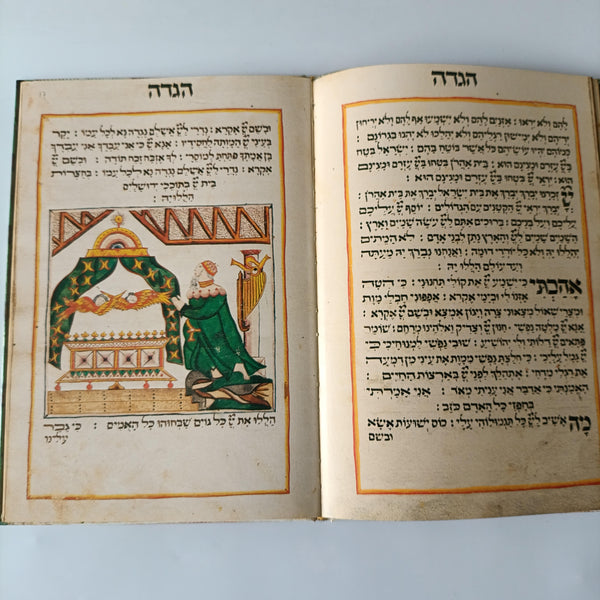 הגדה
להם ולא יראו : אזנים להם ולא ישמעו אף להם ולא יריחון
ידיהם ולא ימישון רגליהם ולא יהלכו לא יהגו בגרונם
כמוהם יהיו עושיהם כל אשר בוטח בהם : ישראל בטח
ביי עזרם ומגינם הוא : בית אהרן בטחו ביי עזרם ומגינם
הוא : יראי יי בטחו ביי עזרם ומגינם הוא :
יי זכרנו יברך יברך את בית ישראל יברך את בית אהרן
יברך יראי יי הקטנים עם הגדולים : יוסף יי עליכם
עליכם ועל בניכם : ברוכים אתם ליי עושה שמים וארץ
השמים שמים ליי והארץ נתן לבני אדם : לא המתים
יהללו יה ולא כל יורדי דומה : ואנחנו נברך יה מעתה
ועד עולם הללו יה :
אהבתי כי ישמע יי את קולי תחנוני : כי הטה
אזנו לי ובימי אקרא : אפפוני חבלי מות
ומצרי שאול מצאוני צרה ויגון אמצא ובשם יי
אקרא : אנא יי מלטה נפשי : חנון יי וצדיק ואלהינו מרחם : שומר
פתאים יי דלותי ולי יהושיע : שובי נפשי למנוחיכי כי יי
גמל עליכי : כי חלצת נפשי ממות את עיני מן דמעה
את רגלי מדחי : אתהלך לפני יי בארצות החיים :
האמנתי כי אדבר אני עניתי מאד : אני אמרתי
בחפזי כל האדם כוזב :
מה אשיב ליי כל תגמולוהי עלי : כוס ישועות אשא
ובשם
הגדה
17
ובשם יי אקרא : נדרי ליי אשלם נגדה נא לכל עמו : יקר
בעיני יי המותה לחסידיו : אנא יי כי אני עבדך אני עבדך
בן אמתך פתחת למוסרי : לך אזבח זבח תודה : ובשם יי
אקרא : נדרי ליי אשלם נגדה נא לכל עמו : בחצרות
בית יי בתוככי ירושלים
הללויה :
הללו את יי כל גוים שבחוהו כל האמים : כי גבר
עלינו